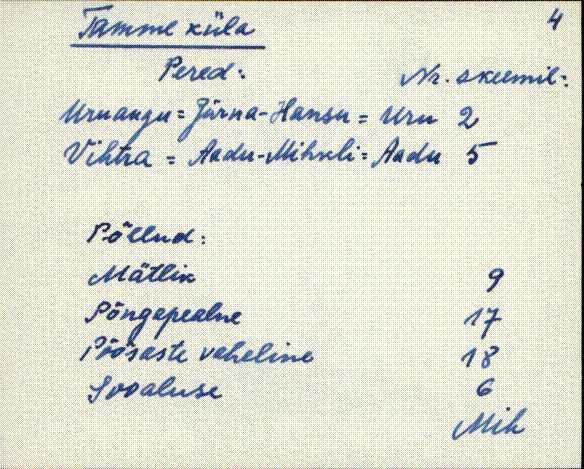 Tamme küla 4
Pered: Nr. skeemil:
Uruaugu = Järna-Hansu = Uru 2
Vihtra = Aadu-Mihkli = Aadu 5
Põllud:
Mätlik 9
Põngapealne 17
Põõsaste vaheline 18
Sooaluse 6
Mih